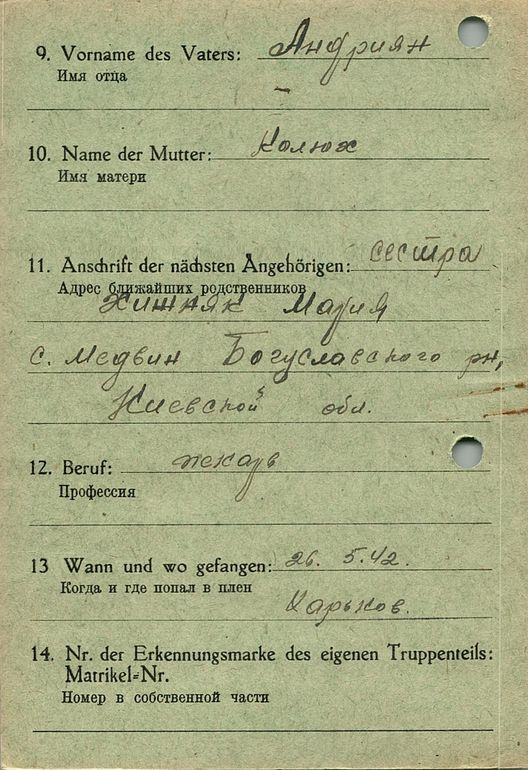 9. Vorname des Vaters: Андриян
Имя отца
10. Name der Mutter: Колюх
Имя матери
11. Anschrift der nächsten Angehörigen: сестра
Адрес ближайших родственников
Хижняк Мария
с. Медвин Богуславского рн,
Киевской обл.
12. Beruf: пекарь
Профессия
13 Wann und wo gefangen: 26. 5.42.
Когда и где попал в плен
Харьков.
14. Nr. der Erkennungsmarke des eigenen Truppenteils:
Matrikel-Nr.
Номер в собственной части